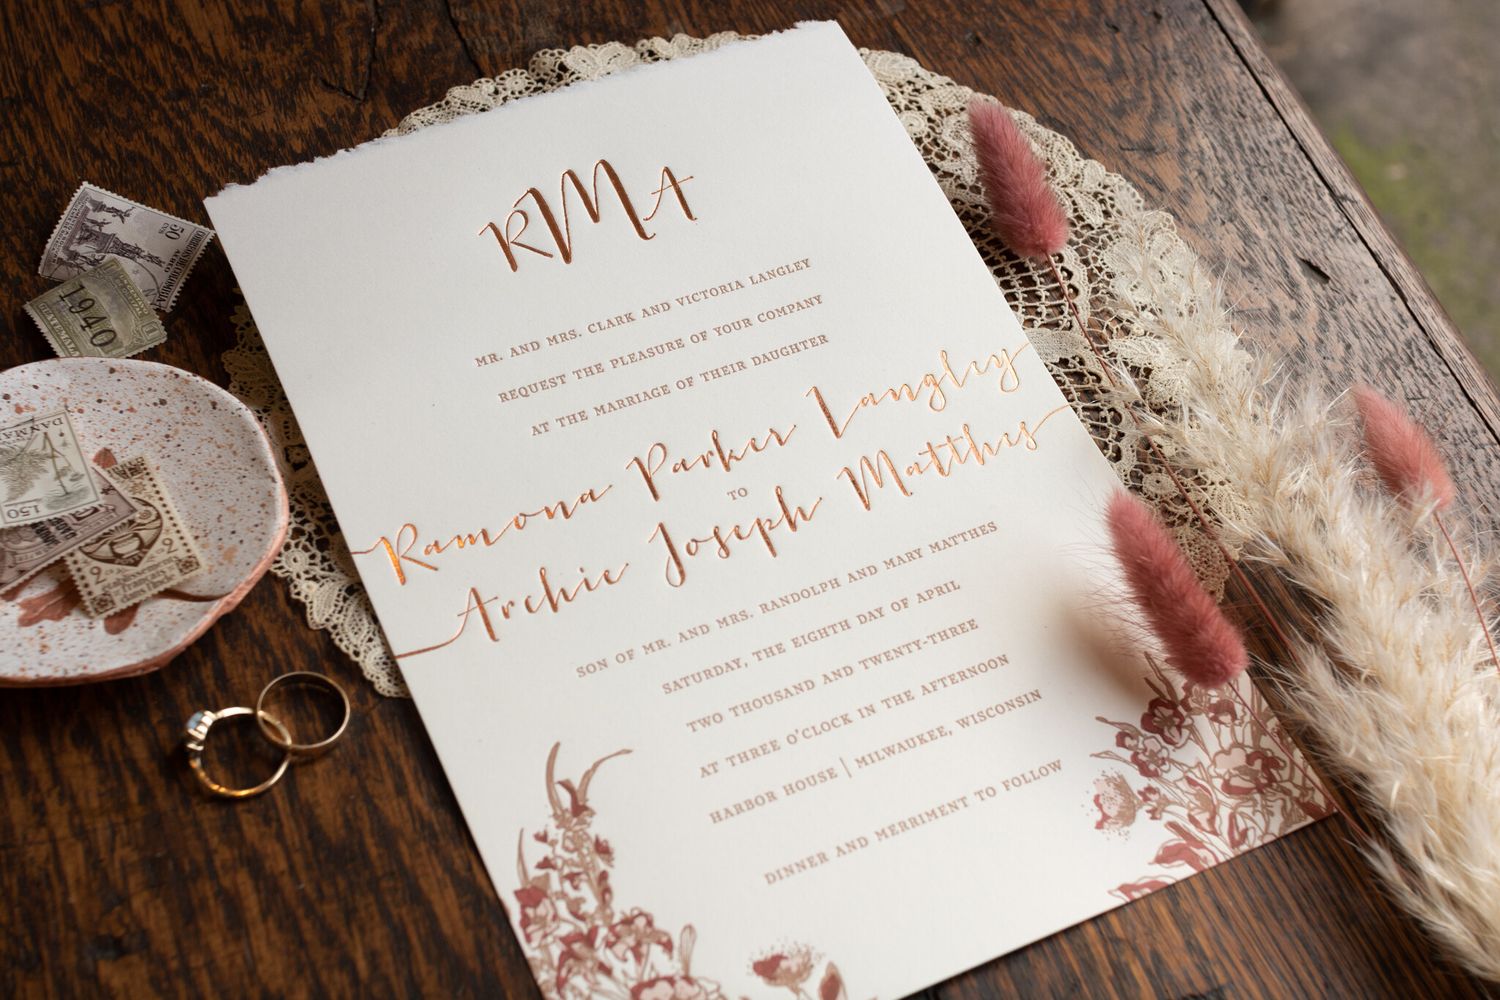 RMA
MR. AND MRS. CLARK AND VICTORIA LANGLEY
REQUEST THE PLEASURE OF YOUR COMPANY
AT THE MARRIAGE OF THEIR DAUGHTER
Ramona Parker Langley
TO
Archie Joseph Matthes
SON OF MR. AND MRS. RANDOLPH AND MARY MATTHES
SATURDAY, THE EIGHTH DAY OF APRIL
TWO THOUSAND AND TWENTY-THREE
AT THREE O'CLOCK IN THE AFTERNOON
HARBOR HOUSE | MILWAUKEE, WISCONSIN
DINNER AND MERRIMENT TO FOLLOW
50
CORREOS DE COLOMBIA
1940
DANMARK
150
2
2